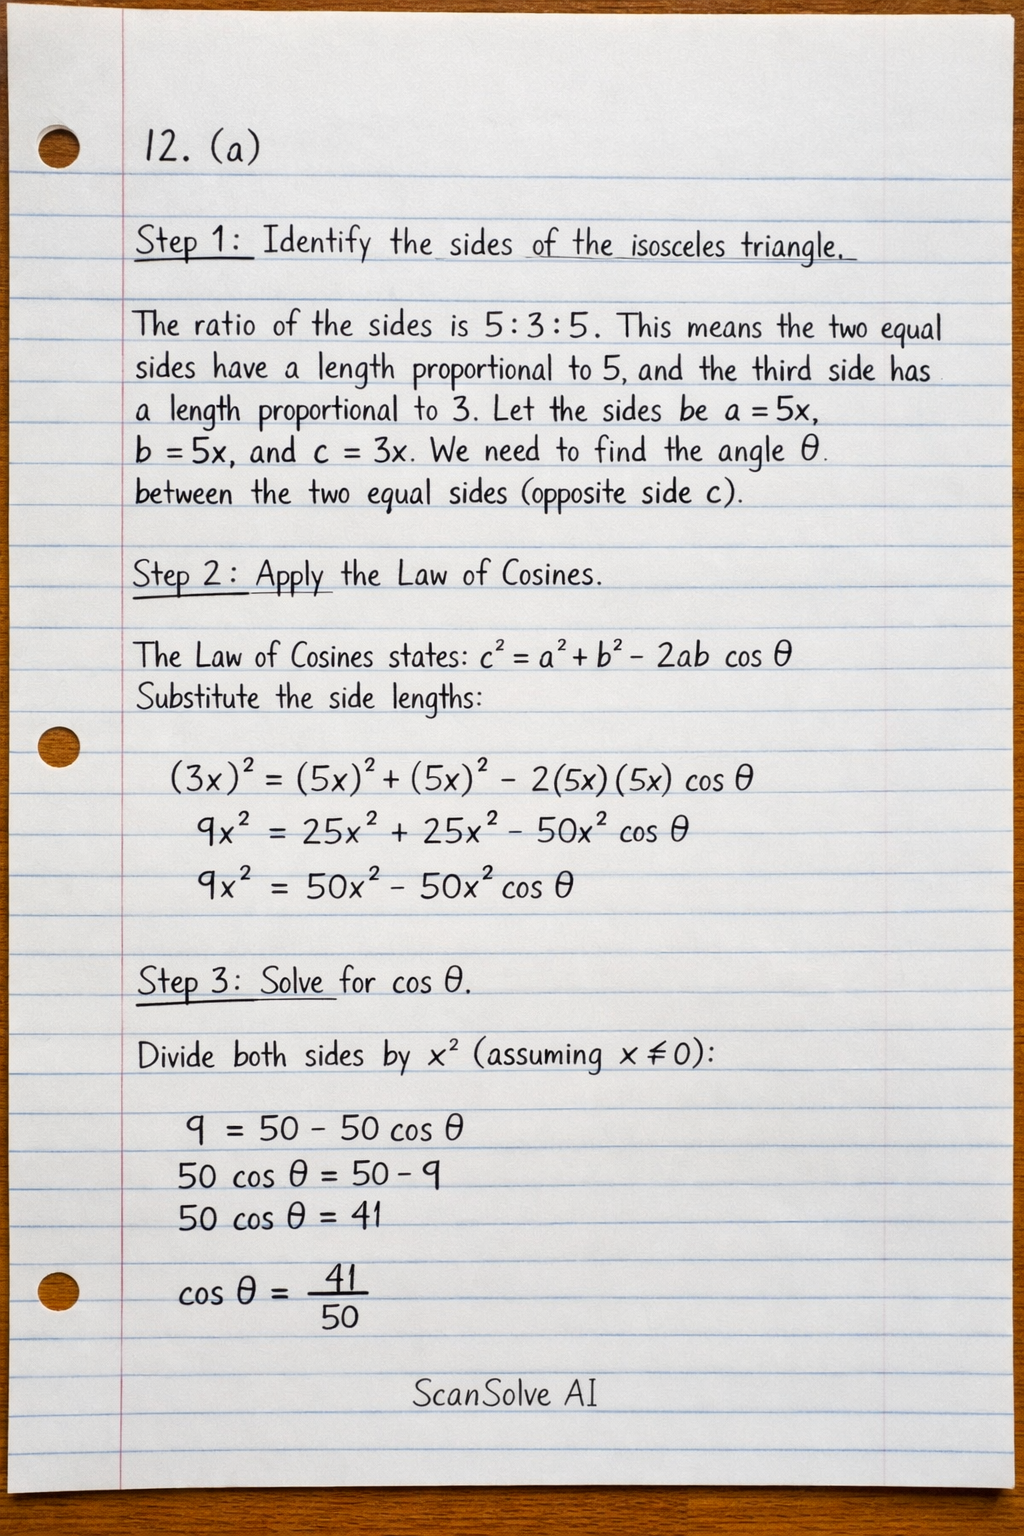 12. (a)
Step 1: Identify the sides of the isosceles triangle.
The ratio of the sides is 5 : 3 : 5. This means the two equal
sides have a length proportional to 5, and the third side has
a length proportional to 3. Let the sides be a = 5x,
b = 5x, and c = 3x. We need to find the angle θ.
between the two equal sides (opposite side c).
Step 2: Apply the Law of Cosines.
The Law of Cosines states: c² = a² + b² - 2ab cos θ
Substitute the side lengths:
(3x)² = (5x)² + (5x)² - 2(5x)(5x) cos θ
9x² = 25x² + 25x² - 50x² cos θ
9x² = 50x² - 50x² cos θ
Step 3: Solve for cos θ.
Divide both sides by x² (assuming x ≠ 0):
9 = 50 - 50 cos θ
50 cos θ = 50 - 9
50 cos θ = 41
cos θ = 41/50
ScanSolve AI